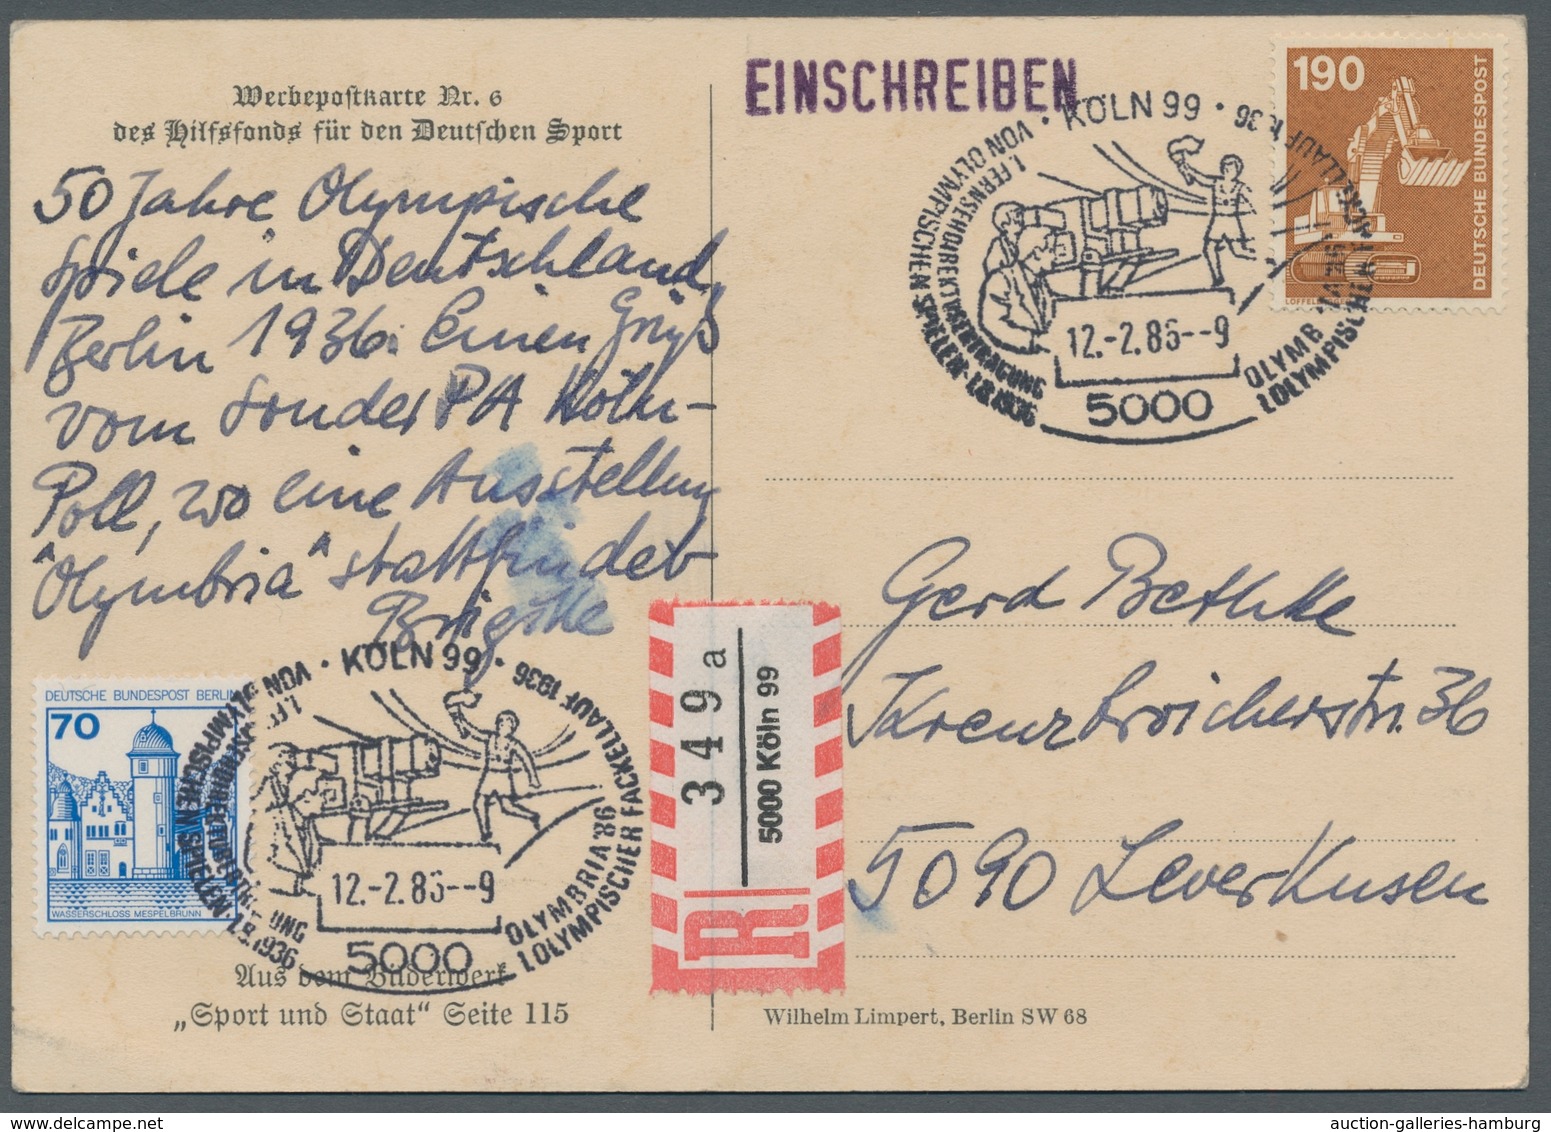 Werbepostkarte Nr. 6
des Hilfsfonds für den Deutschen Sport
50 Jahre Olympische
Spiele in Deutschland,
Berlin 1936. Einen Gruß
vom Sonder PA Köln-
Poll, wo eine Ausstellung
"Olymbria" stattfindet
Brigitte
DEUTSCHE BUNDESPOST BERLIN
70
WASSERSCHLOSS MESPELBRUNN
· KÖLN 99 ·
VON OLYMPISCHEN SPIELEN
1.8.1936
OLYMBRIA '86
1. OLYMPISCHER FACKELLAUF 1936
12.-2.86--9
5000
Aus dem Bilderwerk
„Sport und Staat“ Seite 115
EINSCHREIBEN
190
DEUTSCHE BUNDESPOST
· KÖLN 99 ·
1. FERNSEHDIREKTÜBERTRAGUNG
VON OLYMPISCHEN SPIELEN · 1.8.1936
12.-2.86--9
5000
R
349 a
5000 Köln 99
Gerd Bethke
Kreuzbroicherstr. 36
5090 Leverkusen
Wilhelm Limpert, Berlin SW 68
auction-galleries-hamburg.com